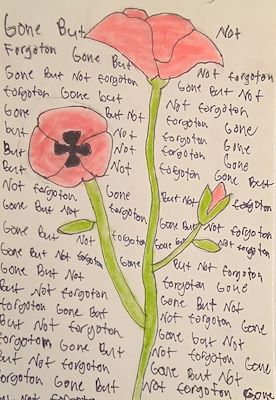 Gone But Not
Forgoton Gone But
Gone But Not forgoton Not forgoton
forgoton Gone but Gone But Not
Gone But Not Not forgoton
but Not forgoton Gone
But Not forgoton Gone
But Not forgoton Gone
Not forgoton Gone forgoton Gone But
Gone But Not But Not forgoton
Gone But Not forgoton Gone But Not forgoton
Gone But Not forgoton Gone but Not forgoton
Gone But Not But Not forgoton
But Not forgoton forgoton Gone
forgoton Gone But Gone But Not
But Not forgoton Not forgoton Gone
forgotom Gone But Gone but Not
But Not forgoton Not forgoton Gone
forgoton Gone But Gone But Not
Not forgoton Not forgoton Gone